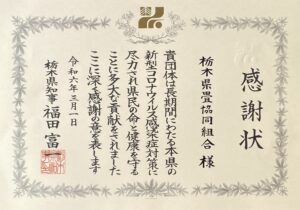 感謝状
栃木県畳協同組合 様
貴団体は長期間にわたる本県の
新型コロナウイルス感染症対策に
尽力され県民の命と健康を守る
ことに多大な貢献をされました
ここに深く感謝の意を表します
令和六年三月一日
栃木県知事 福田富一